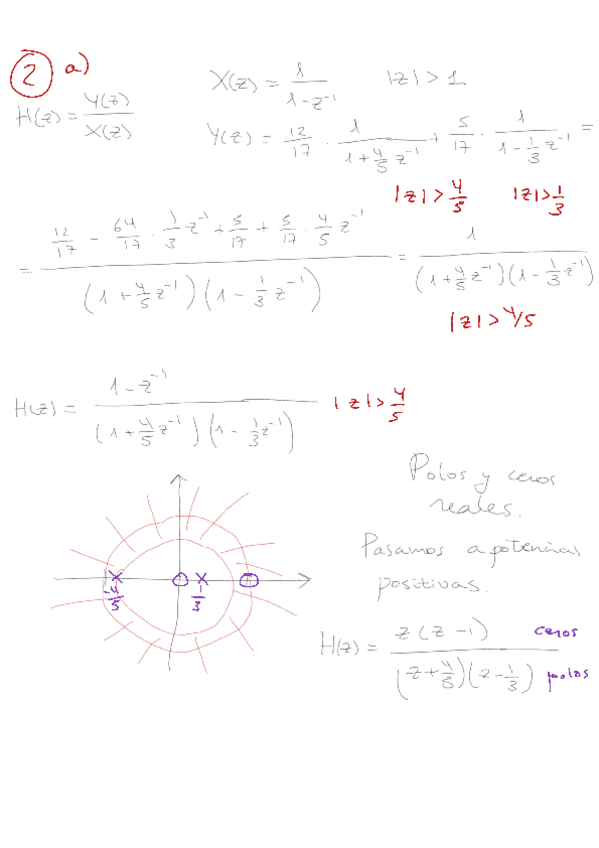 2 a)
H(z) = Y(z)/X(z)
X(z) = 1/(1-z⁻¹) |z| > 1
Y(z) = 12/17 · 1/(1+4/5 z⁻¹) + 5/17 · 1/(1-1/3 z⁻¹) =
|z| > 4/5 |z|>1/3
= (12/17 - 64/17 · 1/3 z⁻¹ + 5/17 + 5/17 · 4/5 z⁻¹)/((1+4/5 z⁻¹)(1-1/3 z⁻¹)) = 1/((1+4/5 z⁻¹)(1-1/3 z⁻¹))
|z| > 4/5
H(z) = (1-z⁻¹)/((1+4/5 z⁻¹)(1-1/3 z⁻¹)) |z|>4/5
Polos y ceros
reales.
Pasamos a potencias
positivas.
-4/5 1/3
H(z) = z(z-1)/((z+4/5)(z-1/3)) ceros
polos